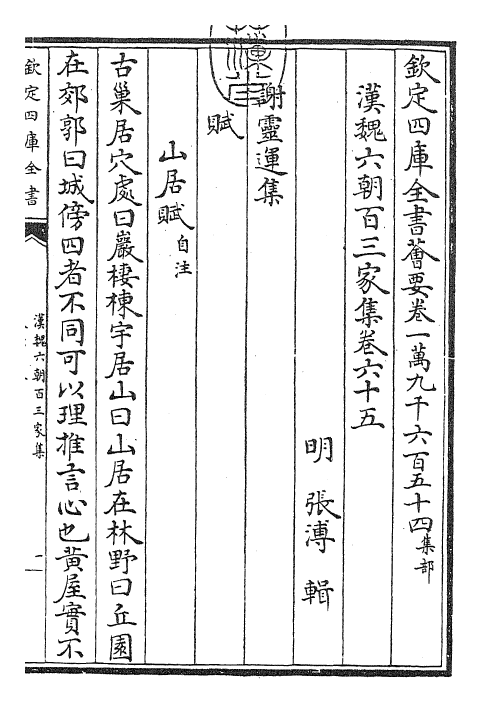 欽定四庫全書薈要卷一萬九千六百五十四集部
漢魏六朝百三家集卷六十五
明 張溥 輯
謝靈運集
賦
山居賦自注
古巢居穴處曰巖棲棟宇居山曰山居在林野曰丘園
在郊郭曰城傍四者不同可以理推言心也黃屋實不
欽定四庫全書
漢魏六朝百三家集
一